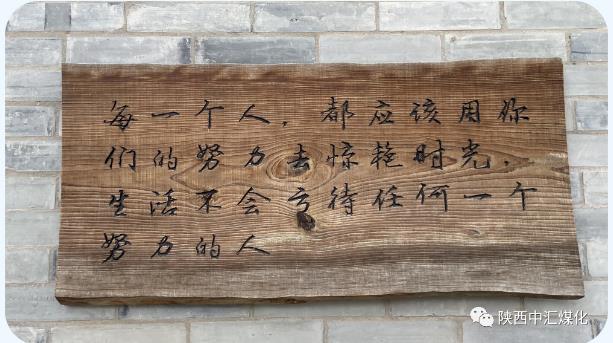 每一个人，都应该用你
们的努力去惊艳时光，
生活不会亏待任何一个
努力的人
陕西中汇煤化